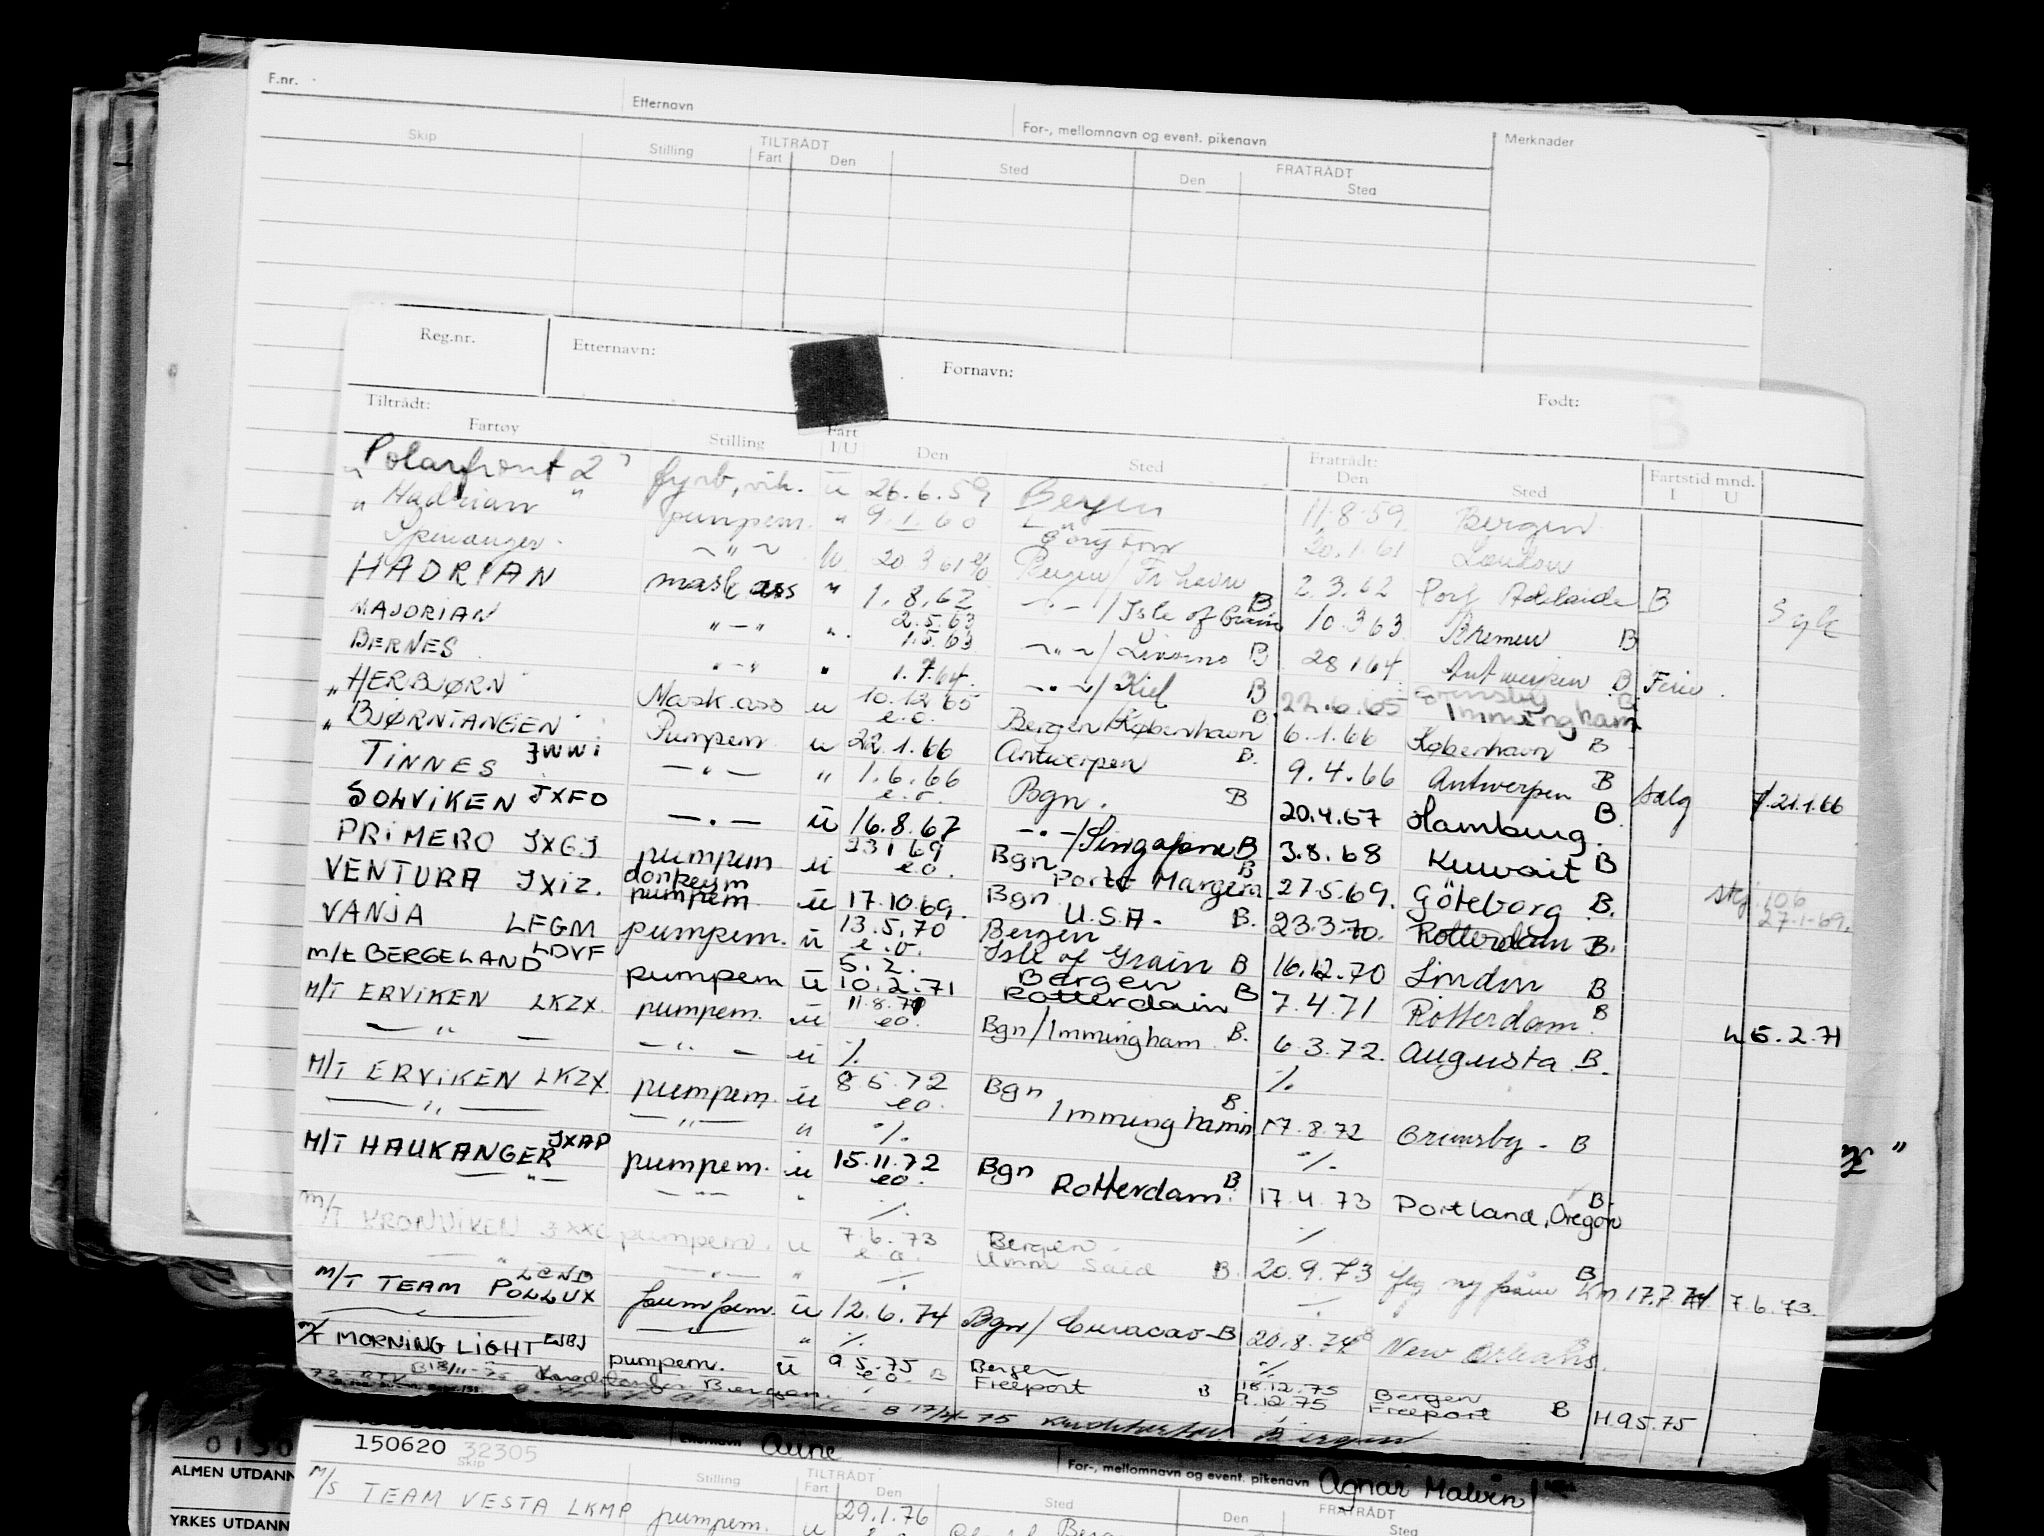 F.nr. Etternavn For-, mellomnavn og event. pikenavn Merknader
Skip Stilling TILTRÅDT Fart Den Sted FRATRÅDT Den Sted
Reg.nr. Etternavn: Fornavn: Født: B
Tiltrådt: Fratrådt:
Fartøy Stilling Fart I/U Den Sted Den Sted Fartstid mnd. I U
" Polarfront 2" fyrb, vik. u 26.6.59 Bergen 11.8.59 Bergen
" Hadrian " pumpem. " 9.1.60 20.1.61 London
Spinanger - " - 20 3 61 Bergen / Fr.havn 2.3.62 Port Adelaide B
HADRIAN mask ass " 1.8.62 - " - / Isle of Grain B 10.3 63 Bremen B Syk
MAJORIAN " - " " 2.5.63 1.5.63 - " - / Livorno B 28 1 64 Antwerpen B Ferie
BERNES " - " " 1.7.64. - " - / Kiel B 22.6.65 Grimsby Immingham B
" HERBJØRN Mask.ass u 10.12 65 e.o. Bergen København B 6.1.66 København B
" BJØRNTANGEN Pumpem u 22.1.66 Antwerpen B. 9.4.66 Antwerpen B Salg 21.1.66
TINNES JWWI - " - " 1.6.66 e.o. Bgn. B 20.4.67 Hamburg. B
SOLVIKEN JXFO - " - u 16.8.67 - " - / Singapore B 3.8.68 Kuwait B
PRIMERO JXGJ pumpem u 23 1 69 e.o. Bgn Porto Margera B 27.5.69. Göteborg B. 106 27.1.69.
VENTURA JXIZ. donkeym pumpem u 17.10.69. Bgn U.S.A. B. 23.3.70. Rotterdam B.
VANJA LFGM pumpem. u 13.5.70 e.o. Bergen Isle of Grain B 16.12.70 London B
m/t BERGELAND LDVF pumpem u 5.2. 10.2.71 Bergen Rotterdam B 7.4.71 Rotterdam. B 5.2.71
M/T ERVIKEN LKZX. pumpem. u 11.8.71 eo. Bgn / Immingham B. 6.3.72. Augusta B.
- " - - " - u %. %.
M/T ERVIKEN LKZX pumpem. u 8 5.72 eo. Bgn Immingham B. 17.8.72 Grimsby - B
- " - - " - " %. %.
M/T HAUKANGER JXAP pumpem. u 15.11.72 eo. Bgn Rotterdam. B 17.4.73 Portland, Oregon B.
- " - - " - " %. %
M/T KRONVIKEN JXXC pumpem. u 7.6.73 e.o. Bergen. Umm Said B. 20.9.73 B 17.7.74 7.6.73.
" - " - " %
M/T TEAM POLLUX LCND pumpem. u 12.6.74 Bgn / Curacao - B 20.8.74 B New Orleans.
" %. %
M/T MORNING LIGHT pumpem. u 9 5.75 e.o. B Bergen Freeport B 18.12.75 9.12.75 Bergen Freeport B H.95.75
Bergen.
B Bergen
0150
150620 32305 Etternavn Aune For-, mellomnavn og event. pikenavn Agnar Malvin
ALMEN UTDANN
Skip Stilling TILTRÅDT Fart Den Sted FRATRÅDT Den Sted
M/S TEAM VESTA LKMP pumpem. u 29.1.76
YRKES UTDANN